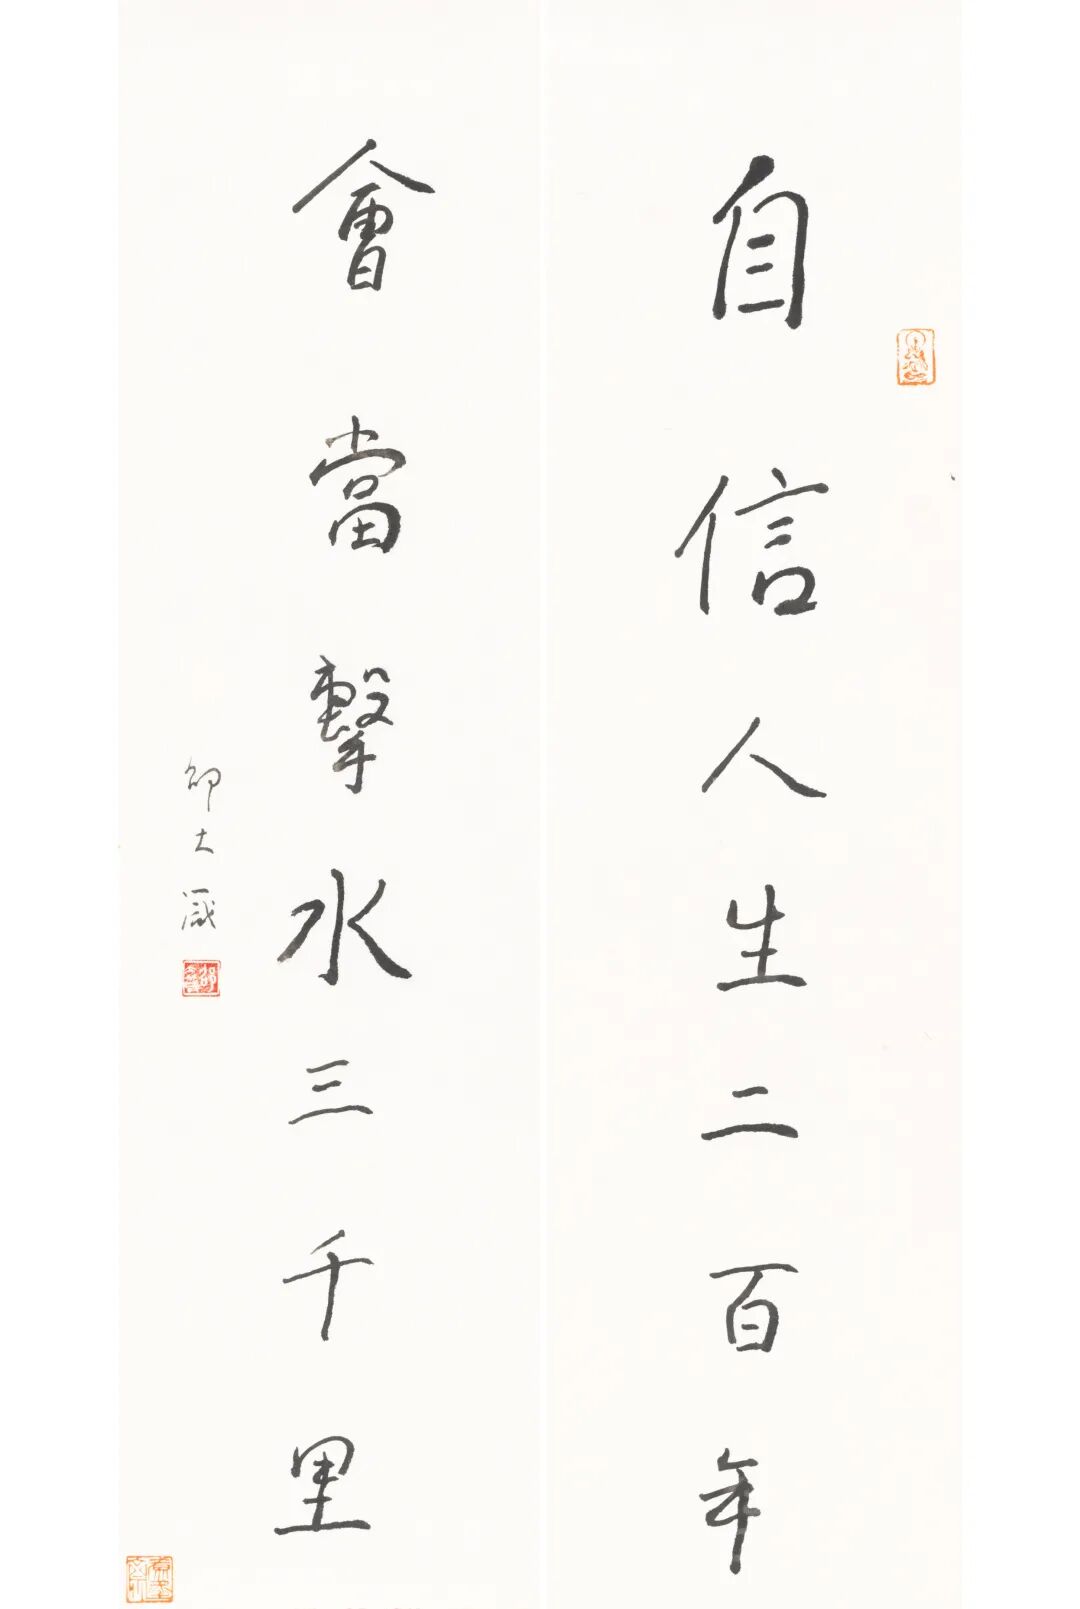 自信人生二百年
會當擊水三千里
邵大箴